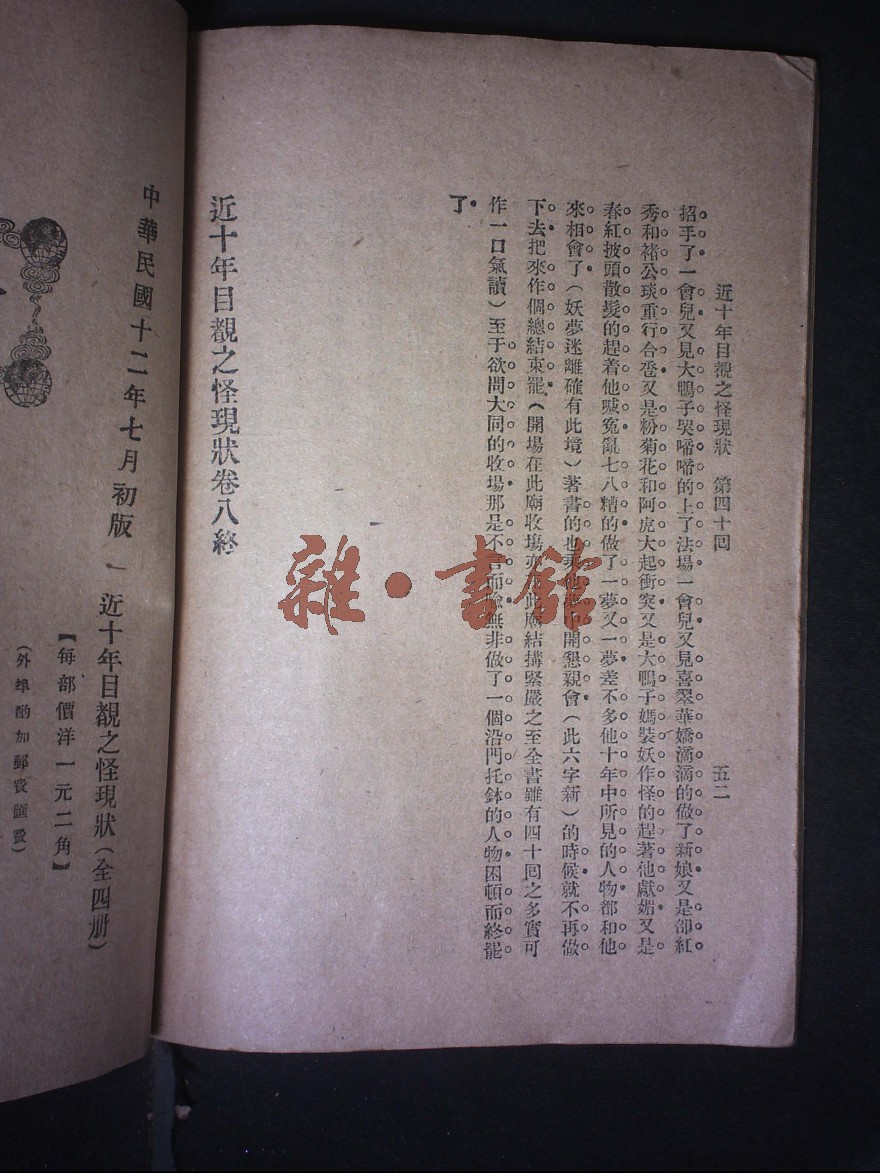 近十年目覩之怪現狀　第四十回　五二
招手了一會兒又見大鴨子哭啼啼的上了法場一會兒又見喜翠華嬌滴滴的做了新娘又是部紅
秀和褚公琰重行合巹又是粉菊花和阿虎大起衝突又是大鴨子媽裝妖作怪的趕著他獻媚又是
春紅披頭散髮的趕着他喊冤亂七八糟的做了一夢又一夢差不多他十年中所見的人物都和他
來相會了（妖夢迷離確有此境）著書的也乘他夢中開懇親會（此六字新）的時候就不再做
下去把來作個總結束罷（開場在此廟收場亦在此廟結搆緊嚴之至全書雖有四十回之多實可
作一口氣讀）至于欲問大同的收場那是不言而喻無非做了一個沿門托鉢的人物困頓而終罷
了
近十年目覩之怪現狀卷八終
雜·書館
中華民國十二年七月初版
近十年目覩之怪現狀（全四册）
【每部價洋一元二角】
（外埠酌加郵費匯費）